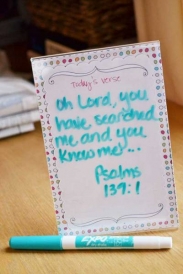 today's verse
Oh Lord, you
have searched
me and you
know me!...
Psalms
139:1
EXPO